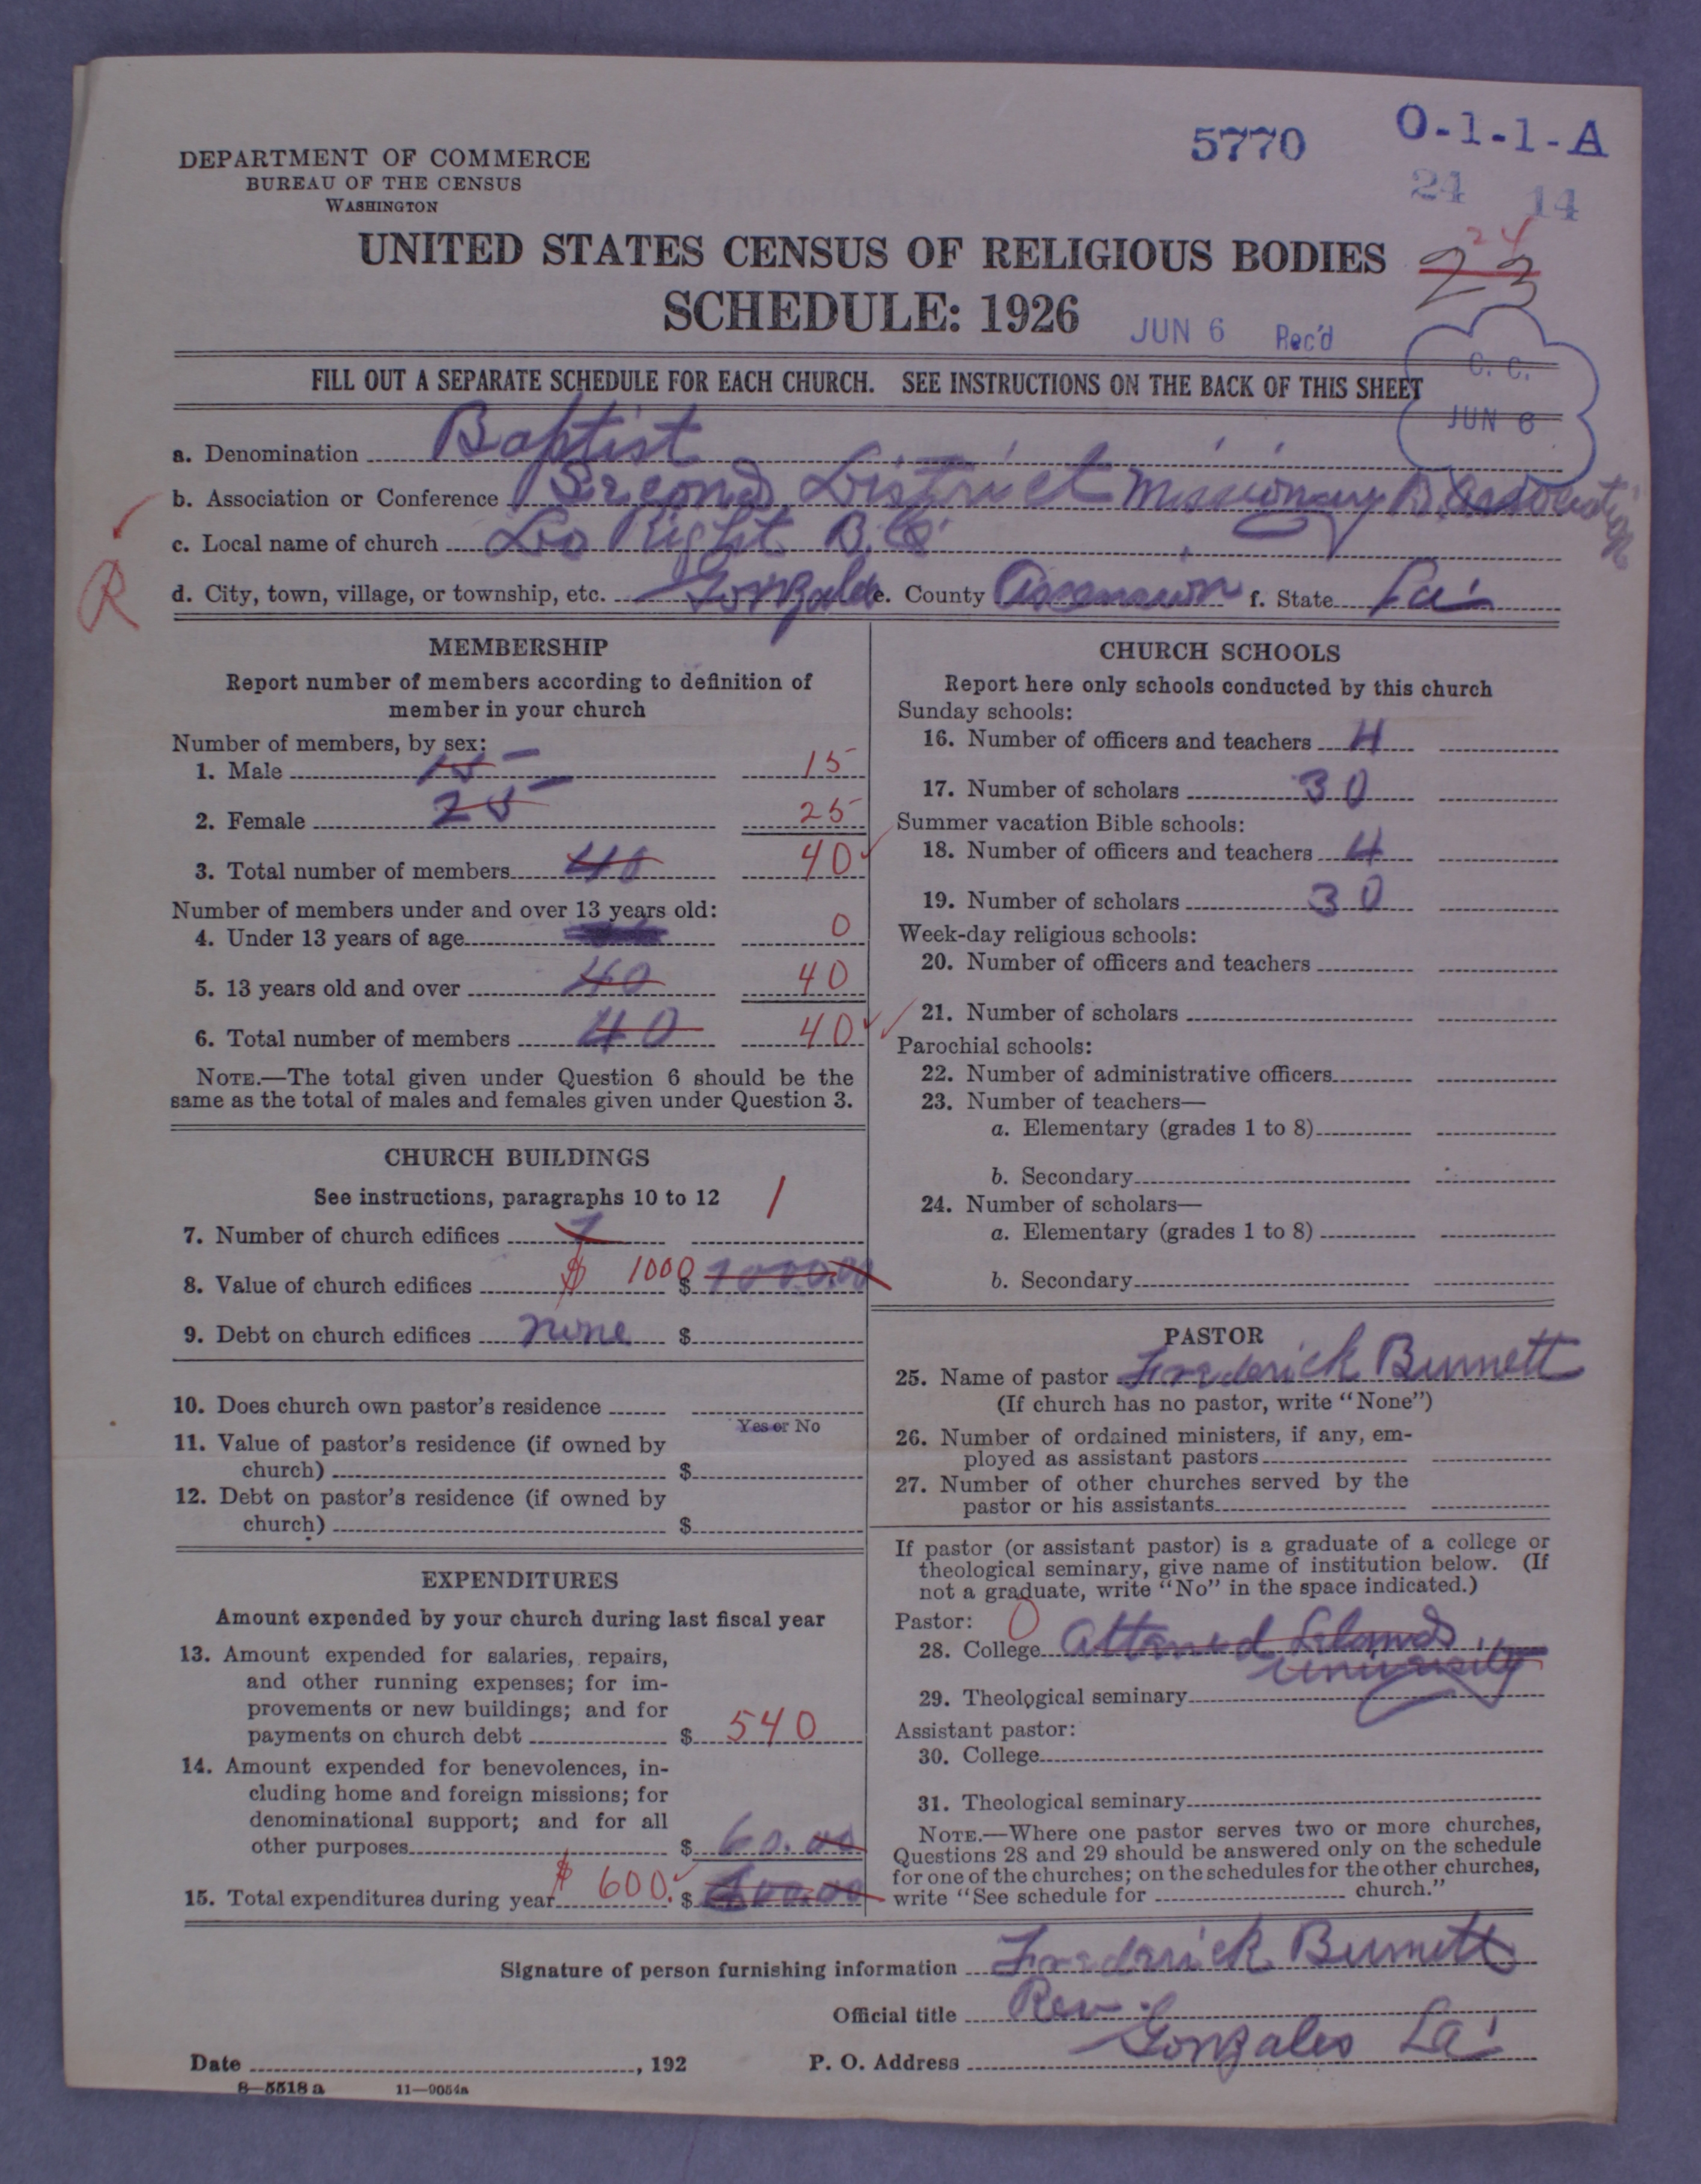 5770
O-1-1-A
24 14
DEPARTMENT OF COMMERCE
BUREAU OF THE CENSUS
WASHINGTON
24
23
UNITED STATES CENSUS OF RELIGIOUS BODIES
SCHEDULE: 1926
JUN 6 Rec'd
C. C.
JUN 6
FILL OUT A SEPARATE SCHEDULE FOR EACH CHURCH. SEE INSTRUCTIONS ON THE BACK OF THIS SHEET
a. Denomination Baptist
b. Association or Conference Second District Missionary B. Association
c. Local name of church Do Right B.C.
R
d. City, town, village, or township, etc. Gonzales e. County Ascension f. State La.
MEMBERSHIP
Report number of members according to definition of
member in your church
Number of members, by sex:
1. Male 15 15
2. Female 25 25
3. Total number of members 40 40
Number of members under and over 13 years old:
4. Under 13 years of age 0
5. 13 years old and over 40 40
6. Total number of members 40 40
NOTE.—The total given under Question 6 should be the
same as the total of males and females given under Question 3.
CHURCH BUILDINGS
See instructions, paragraphs 10 to 12 1
7. Number of church edifices 1
8. Value of church edifices $ 1000 $ 1000.00
9. Debt on church edifices none $
10. Does church own pastor's residence
Yes or No
11. Value of pastor's residence (if owned by
church) $
12. Debt on pastor's residence (if owned by
church) $
EXPENDITURES
Amount expended by your church during last fiscal year
13. Amount expended for salaries, repairs,
and other running expenses; for im-
provements or new buildings; and for
payments on church debt $ 540
14. Amount expended for benevolences, in-
cluding home and foreign missions; for
denominational support; and for all
other purposes $ 60.00
15. Total expenditures during year $ 600. $ 600.00
CHURCH SCHOOLS
Report here only schools conducted by this church
Sunday schools:
16. Number of officers and teachers 4
17. Number of scholars 30
Summer vacation Bible schools:
18. Number of officers and teachers 4
19. Number of scholars 30
Week-day religious schools:
20. Number of officers and teachers
21. Number of scholars
Parochial schools:
22. Number of administrative officers
23. Number of teachers—
a. Elementary (grades 1 to 8)
b. Secondary
24. Number of scholars—
a. Elementary (grades 1 to 8)
b. Secondary
PASTOR
25. Name of pastor Frederick Burnett
(If church has no pastor, write "None")
26. Number of ordained ministers, if any, em-
ployed as assistant pastors
27. Number of other churches served by the
pastor or his assistants
If pastor (or assistant pastor) is a graduate of a college or
theological seminary, give name of institution below. (If
not a graduate, write "No" in the space indicated.)
Pastor: 0
28. College University
29. Theological seminary
Assistant pastor:
30. College
31. Theological seminary
NOTE.—Where one pastor serves two or more churches,
Questions 28 and 29 should be answered only on the schedule
for one of the churches; on the schedules for the other churches,
write "See schedule for church."
Signature of person furnishing information Frederick Burnett
Official title Rev.
Date , 192 P. O. Address Gonzales La.
8—5518 a 11—9054a